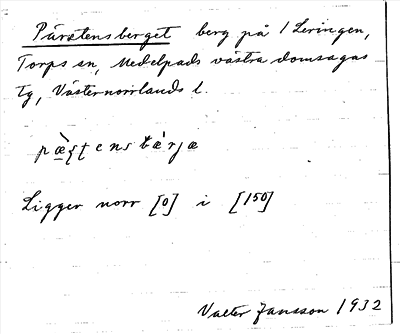 Pärstensberget berg på / Leringen,
Torps sn, Medelpads västra domsagas
tg, Västernorrlands l.
Ligger norr [0] i [150]
Valter Jansson 1932